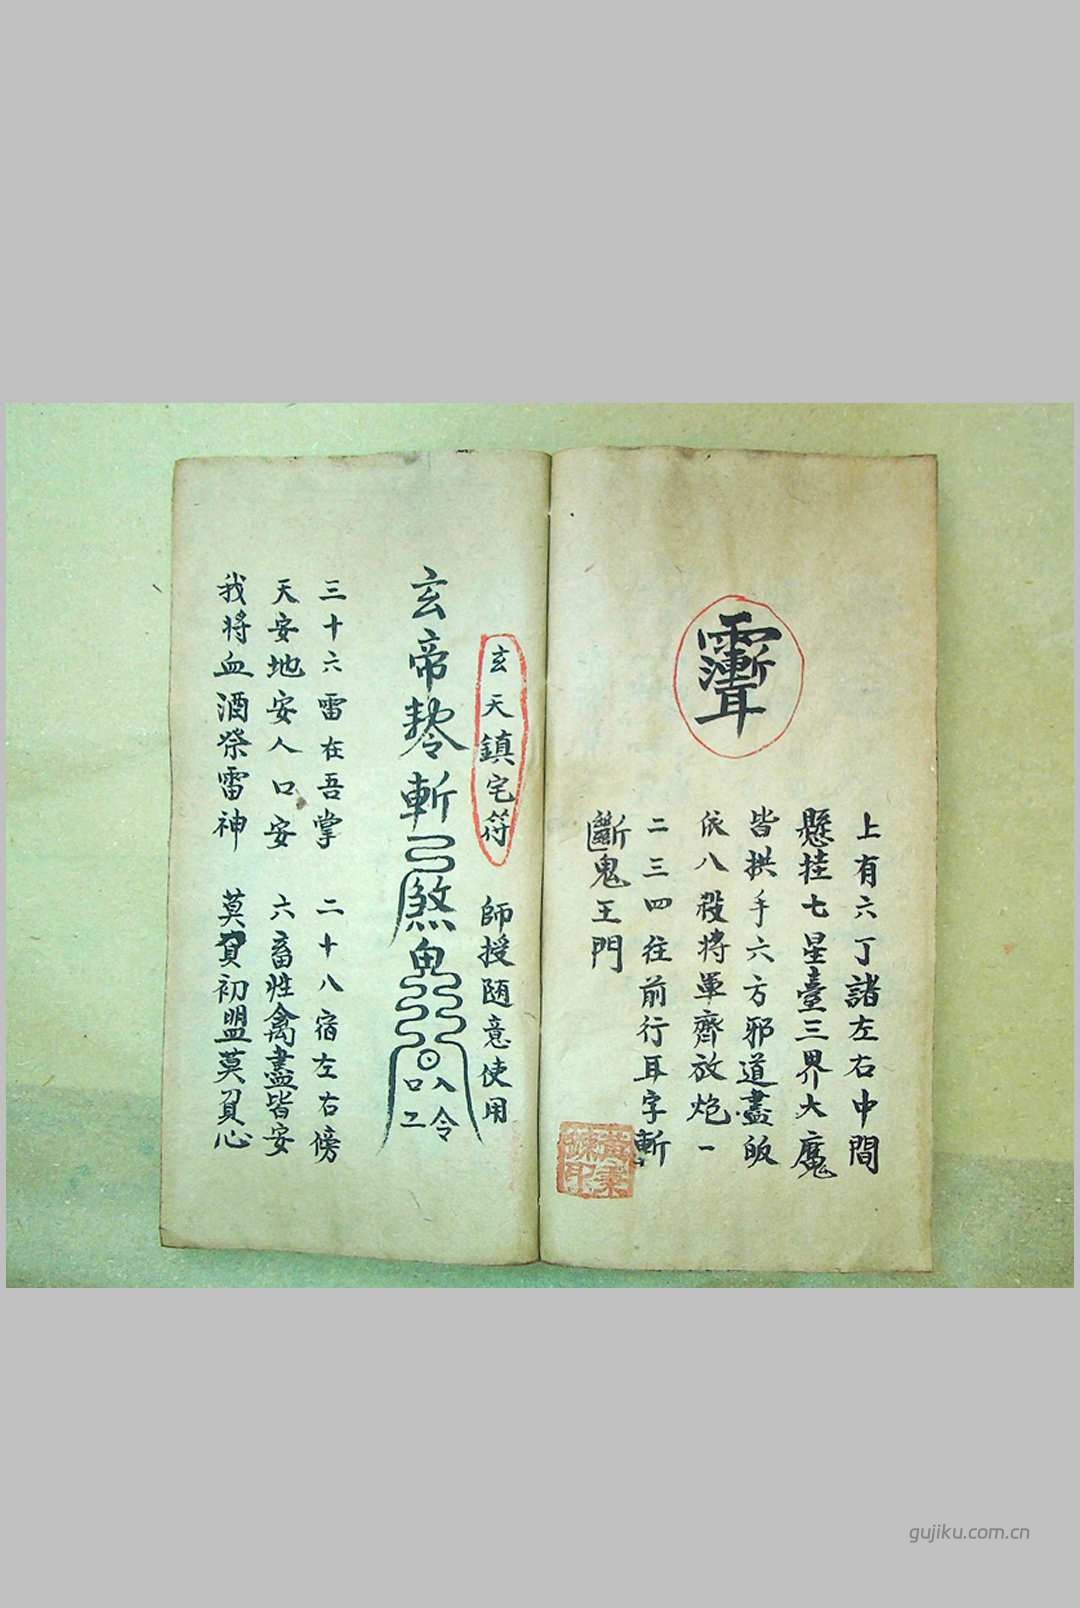 上有六丁諸左右中間
懸挂七星臺三界大魔
皆拱手六方邪道盡皈
依八殺將軍齊放炮一
二三四往前行耳字斬
斷鬼王門
玄天鎮宅符
師授随意使用
玄帝勅斬煞鬼
口八
工令
三十六雷在吾掌 二十八宿左右傍
天安地安人口安 六畜牲禽盡皆安
我將血酒祭雷神 莫負初盟莫負心
gujiku.com.cn